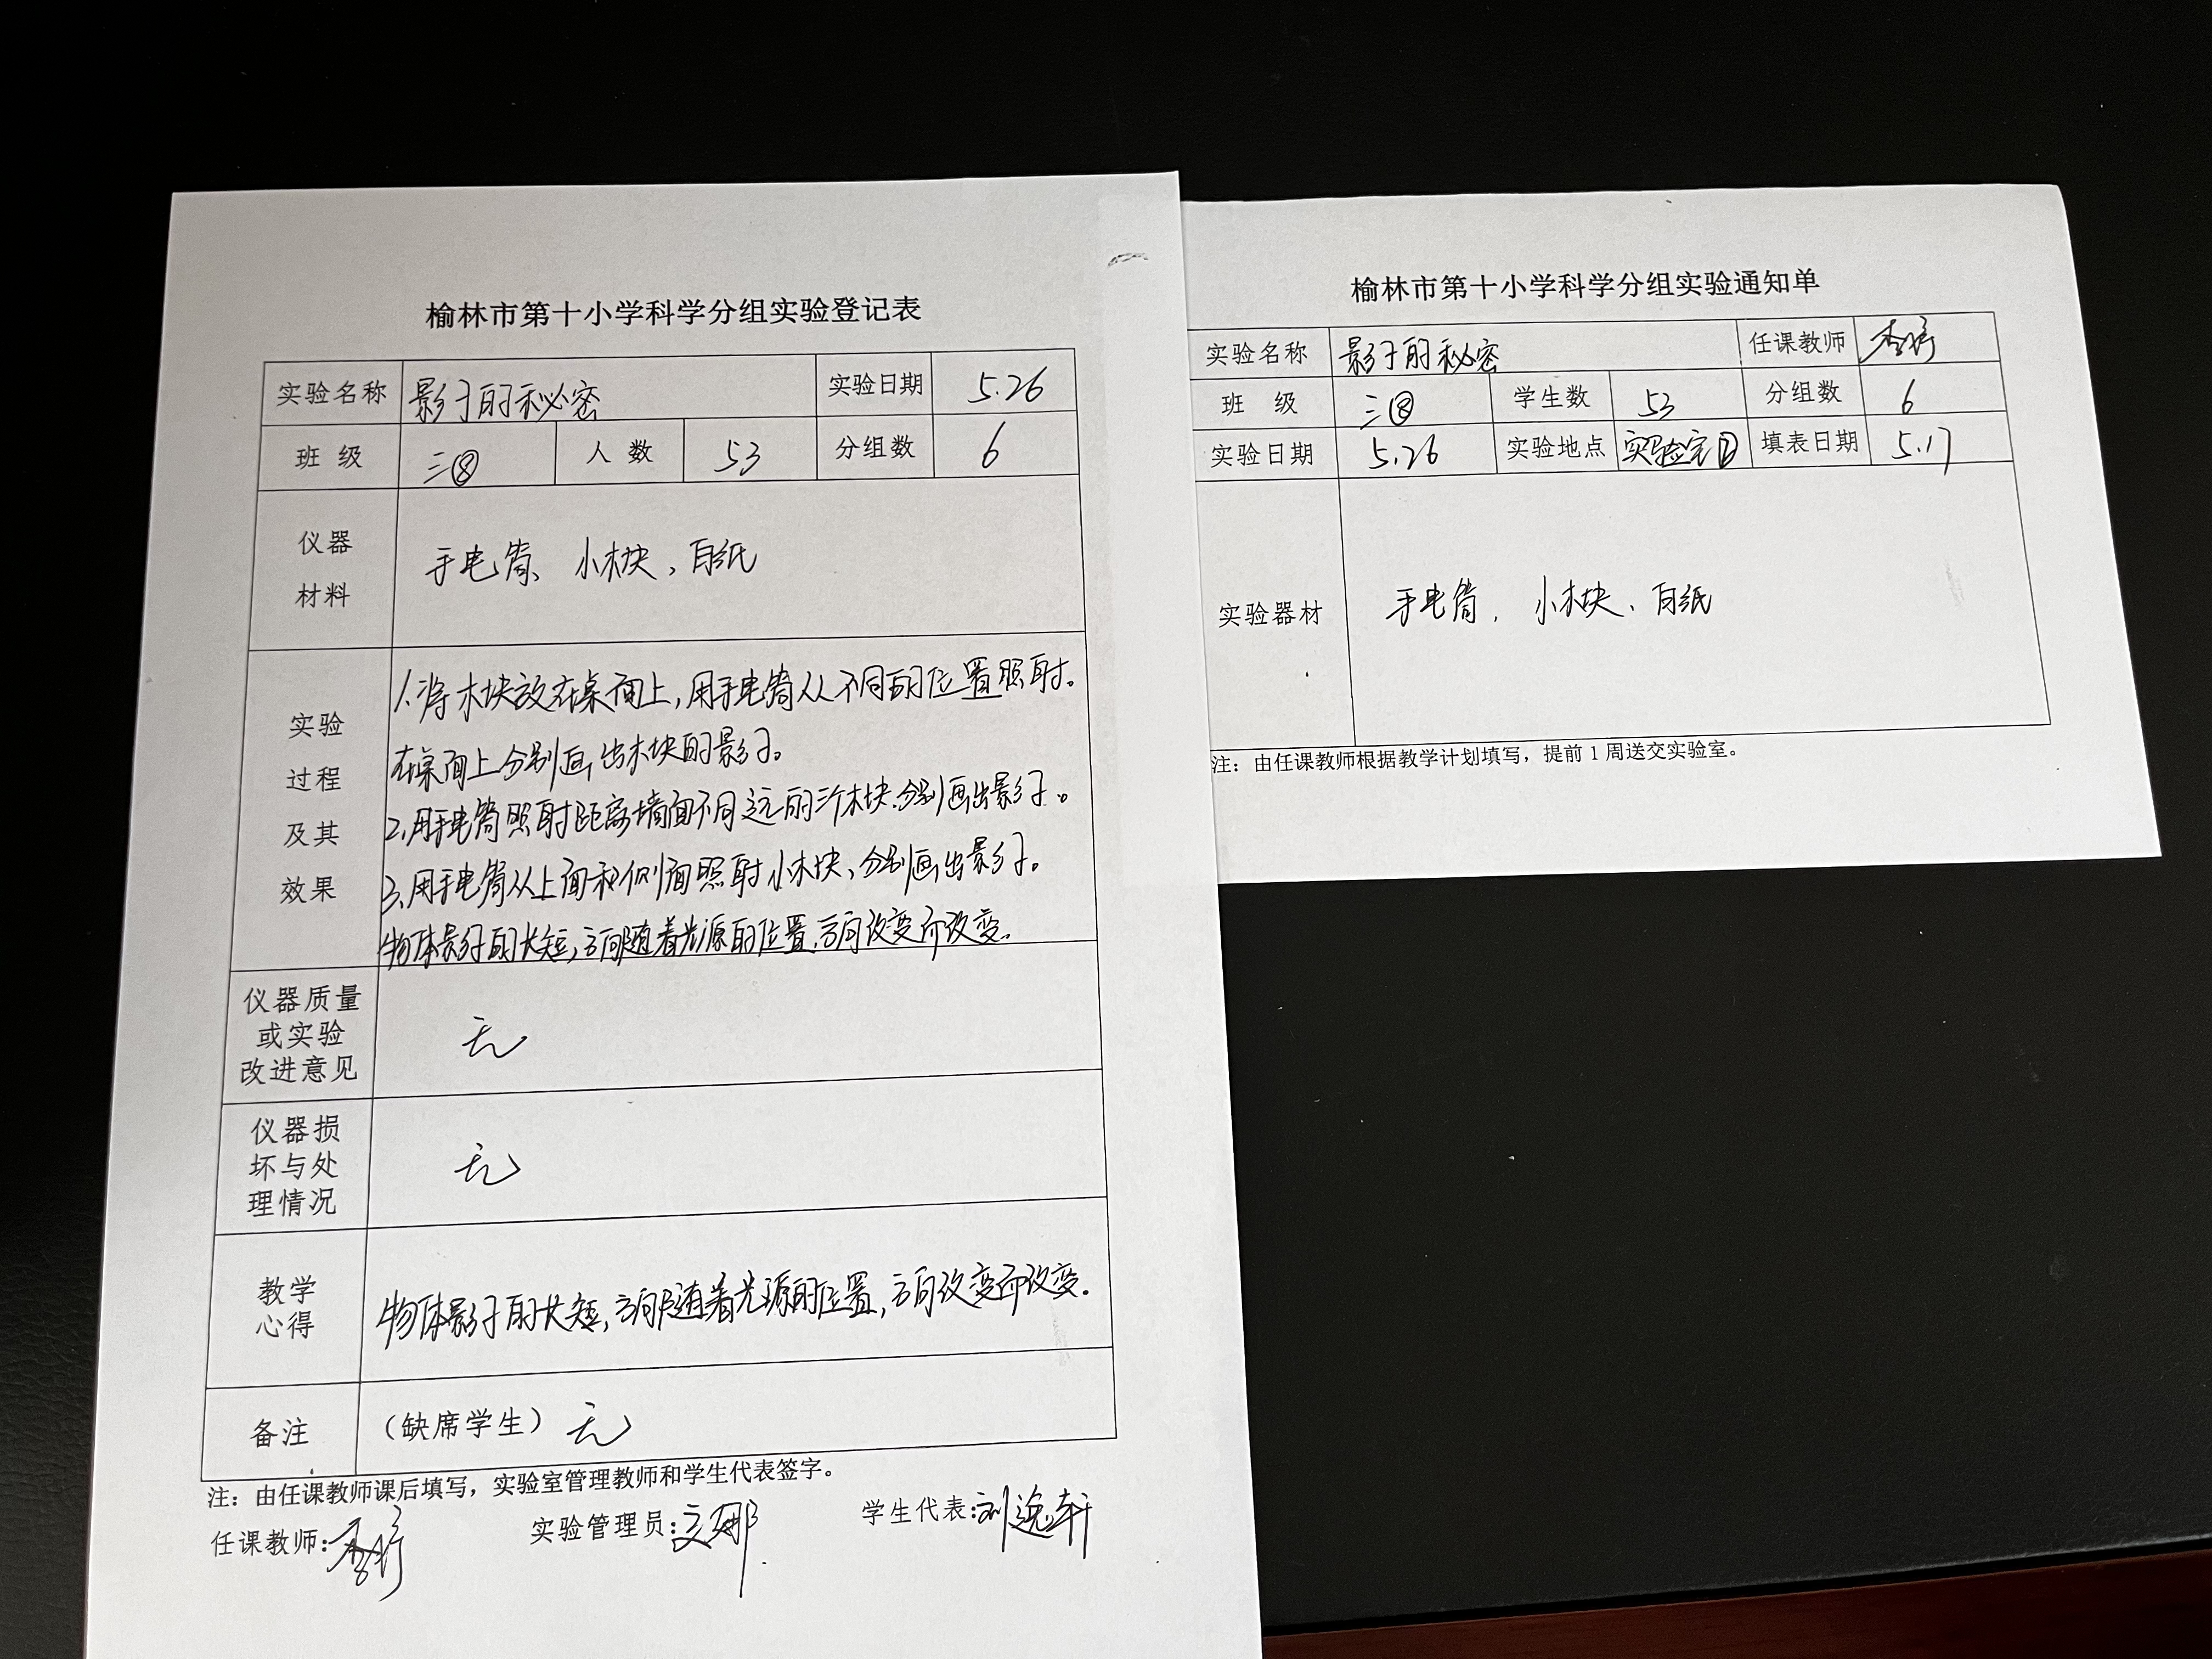 榆林市第十小学科学分组实验登记表
实验名称 影子的秘密 实验日期 5.26
班级 三⑧ 人数 53 分组数 6
仪器
材料
手电筒、小木块、白纸
实验
过程
及其
效果
1.将木块放在桌面上,用手电筒从不同的位置照射。
在桌面上分别画出木块的影子。
2.用手电筒照射距离墙面不同远的三个木块.分别画出影子。
3.用手电筒从上面和侧面照射小木块、分别画出影子。
物体影子的长短,方向随着光源的位置,方向改变而改变.
仪器质量
或实验
改进意见
无
仪器损
坏与处
理情况
无
教学
心得
物体影子的长短,方向随着光源的位置,方向改变而改变.
备注 (缺席学生) 无
注:由任课教师课后填写,实验室管理教师和学生代表签字。
任课教师: 实验管理员: 学生代表:刘逸轩
榆林市第十小学科学分组实验通知单
实验名称 影子的秘密 任课教师
班级 三⑧ 学生数 53 分组数 6
实验日期 5.26 实验地点 实验室② 填表日期 5.17
实验器材 手电筒, 小木块、白纸
注:由任课教师根据教学计划填写,提前1周送交实验室。